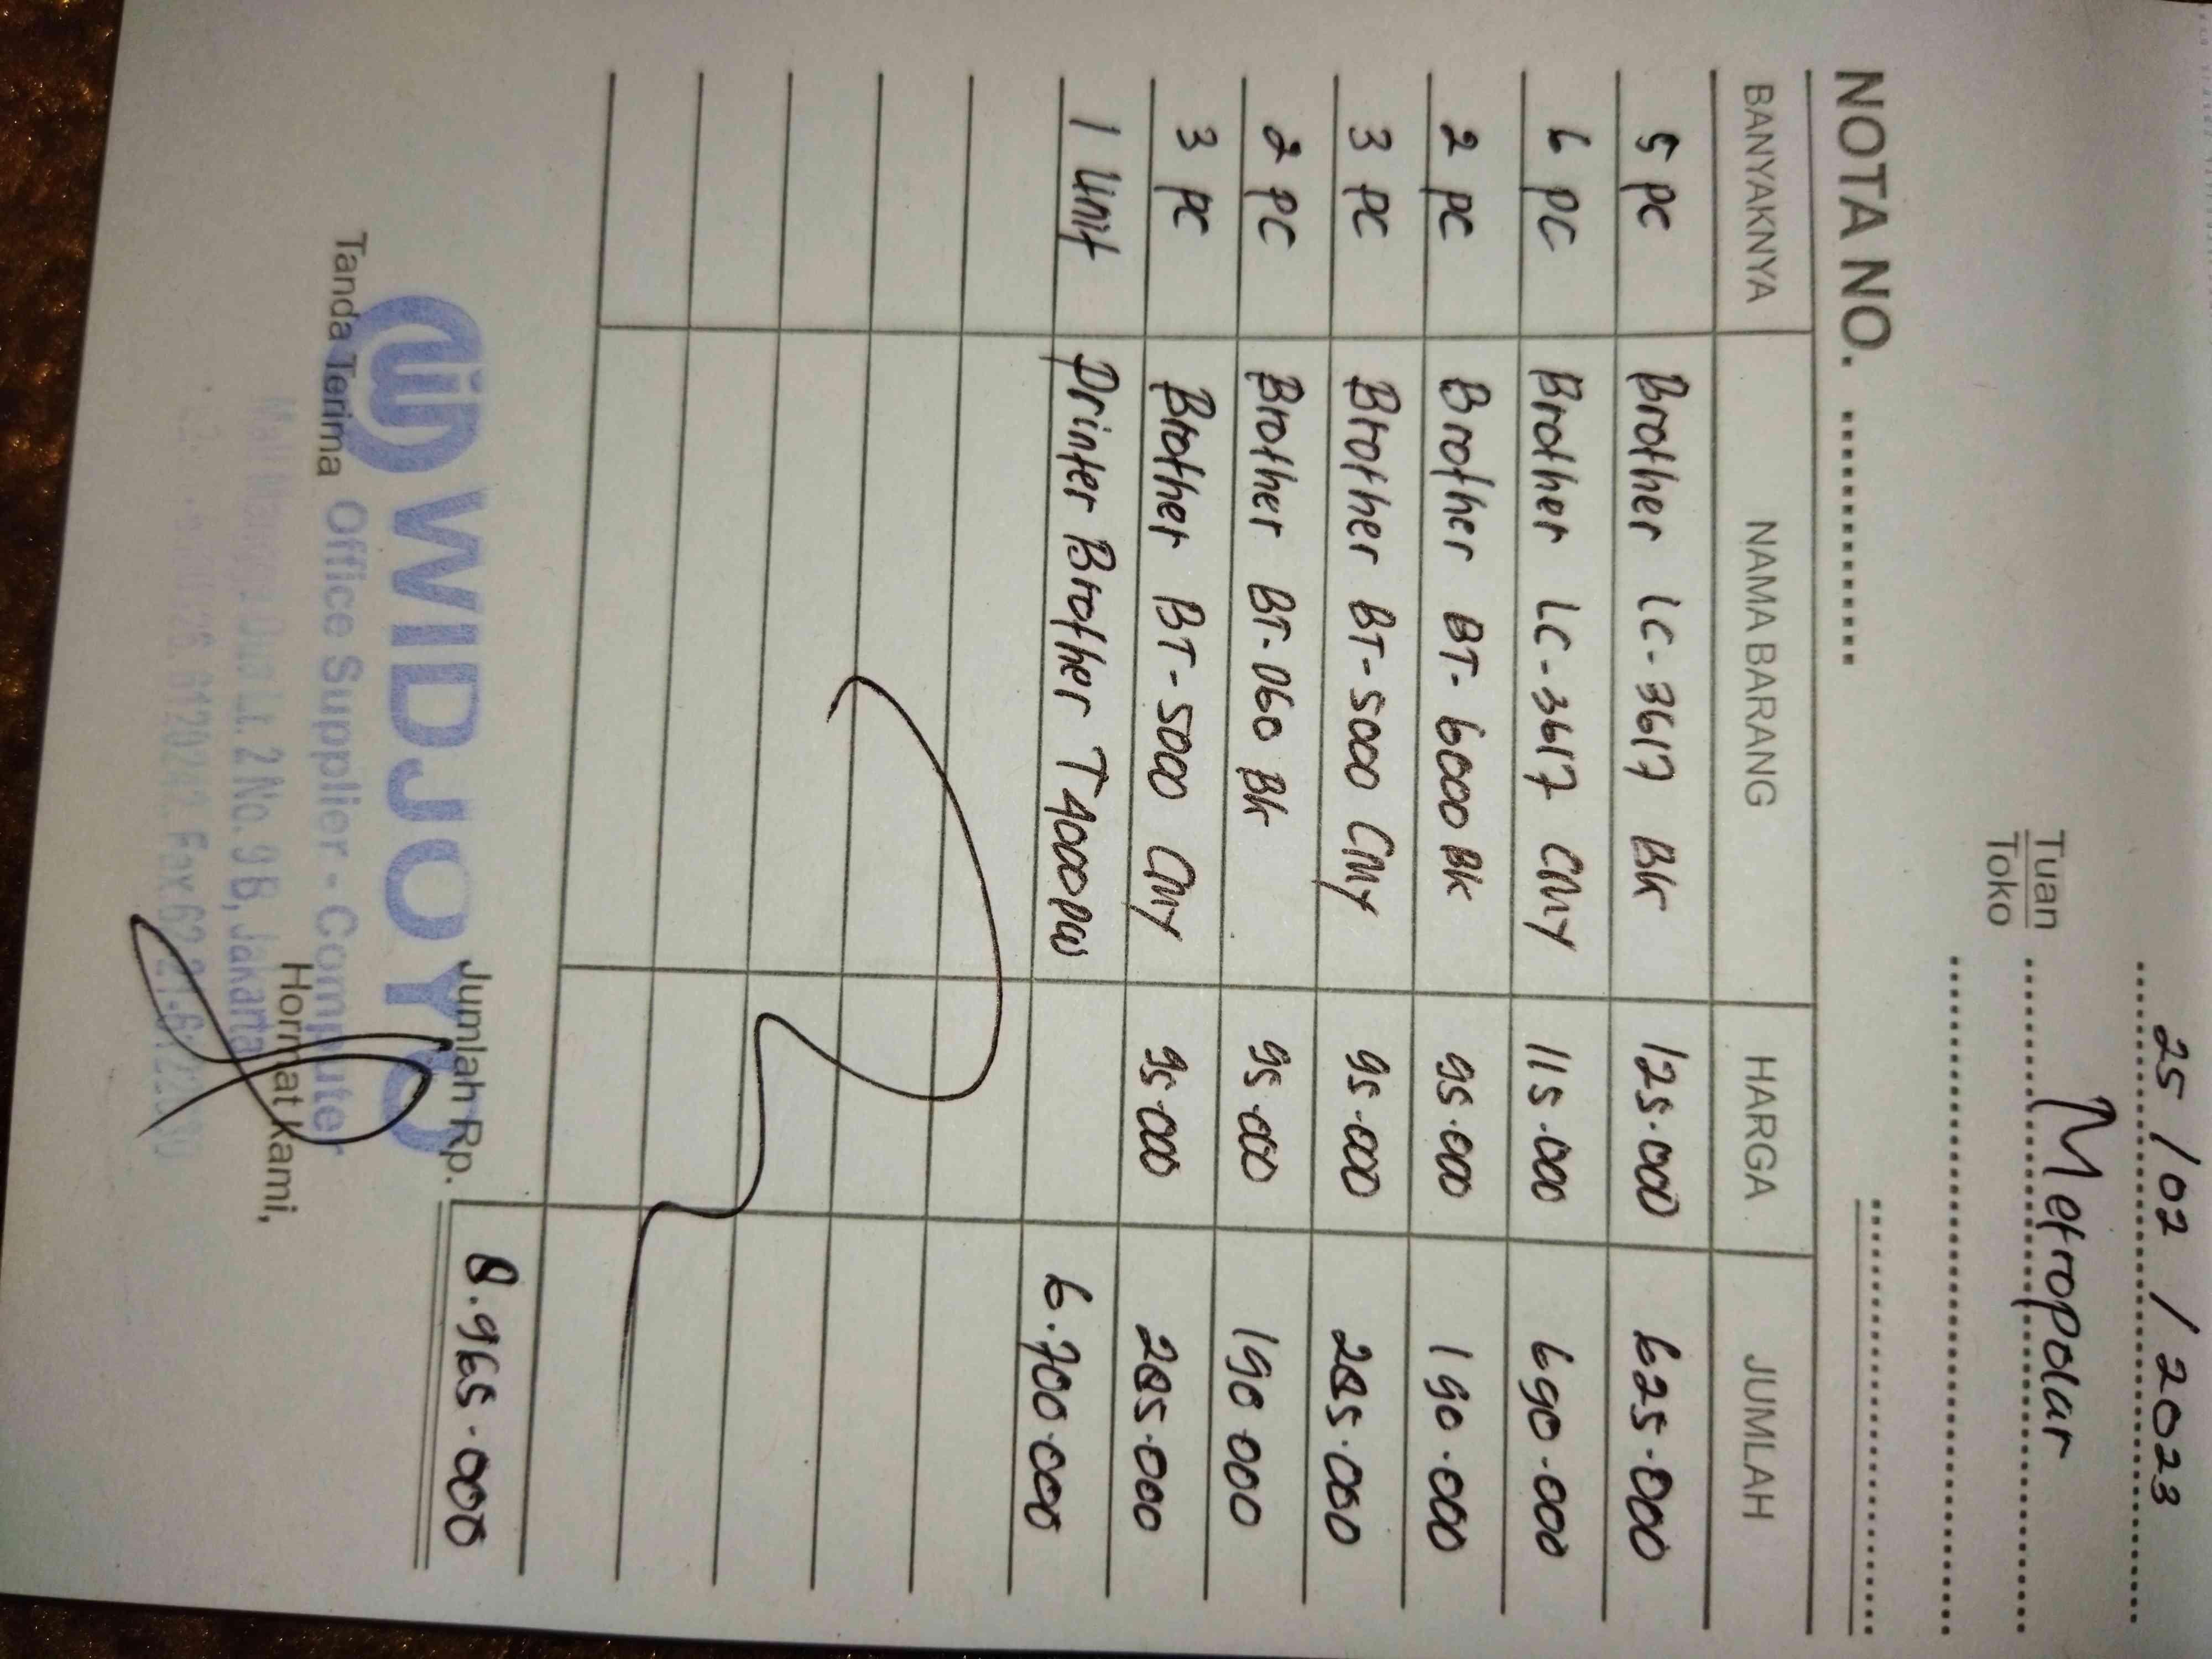 25 / 02 / 2023
Tuan Metropolar
Toko
NOTA NO.
BANYAKNYA NAMA BARANG HARGA JUMLAH
5 pc Brother LC-3617 Bk 125.000 625.000
6 pc Brother LC-3617 CMY 115.000 690.000
2 pc Brother BT-6000 Bk 95.000 190.000
3 pc Brother BT-5000 CMY 95.000 285.000
2 pc Brother BT-D60 Bk 95.000 190.000
3 pc Brother BT-5000 CMY 95.000 285.000
1 Unit Printer Brother T4000DW 6.700.000
Jumlah Rp. 8.965.000
WIDJOYO
Tanda Terima Hormat Kami,
Office Supplier - Computer
Mall Mangga Dua Lt. 2 No. 9 B, Jakarta
6120242. Fax.